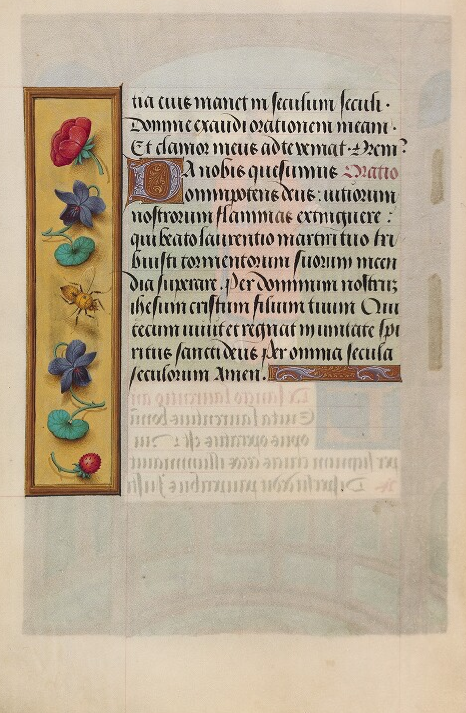 tia eius manet in seculum seculi.
Domine exaudi orationem meam.
Et clamor meus ad te veniat. Oremꝰ
Oratio
Da nobis quesumus
omnipotens deus: uitiorum
nostrorum flammas extinguere:
qui beato laurentio martiri tuo tri
buisti tormentorum suorum incen
dia superare. Per dominum nostrū
ihesum cristum filium tuum Qui
tecum uiuit et regnat in unitate spi
ritus sancti deus per omnia secula
seculorum Amen.